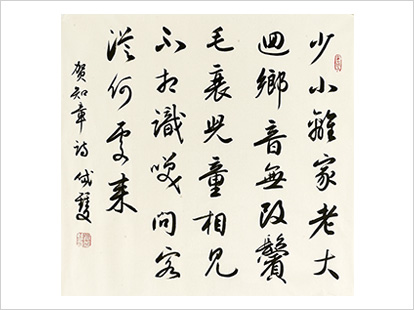 少小離家老大
迴鄉音無改鬢
毛衰兒童相見
不相識咲問客
從何處來
贺知章诗